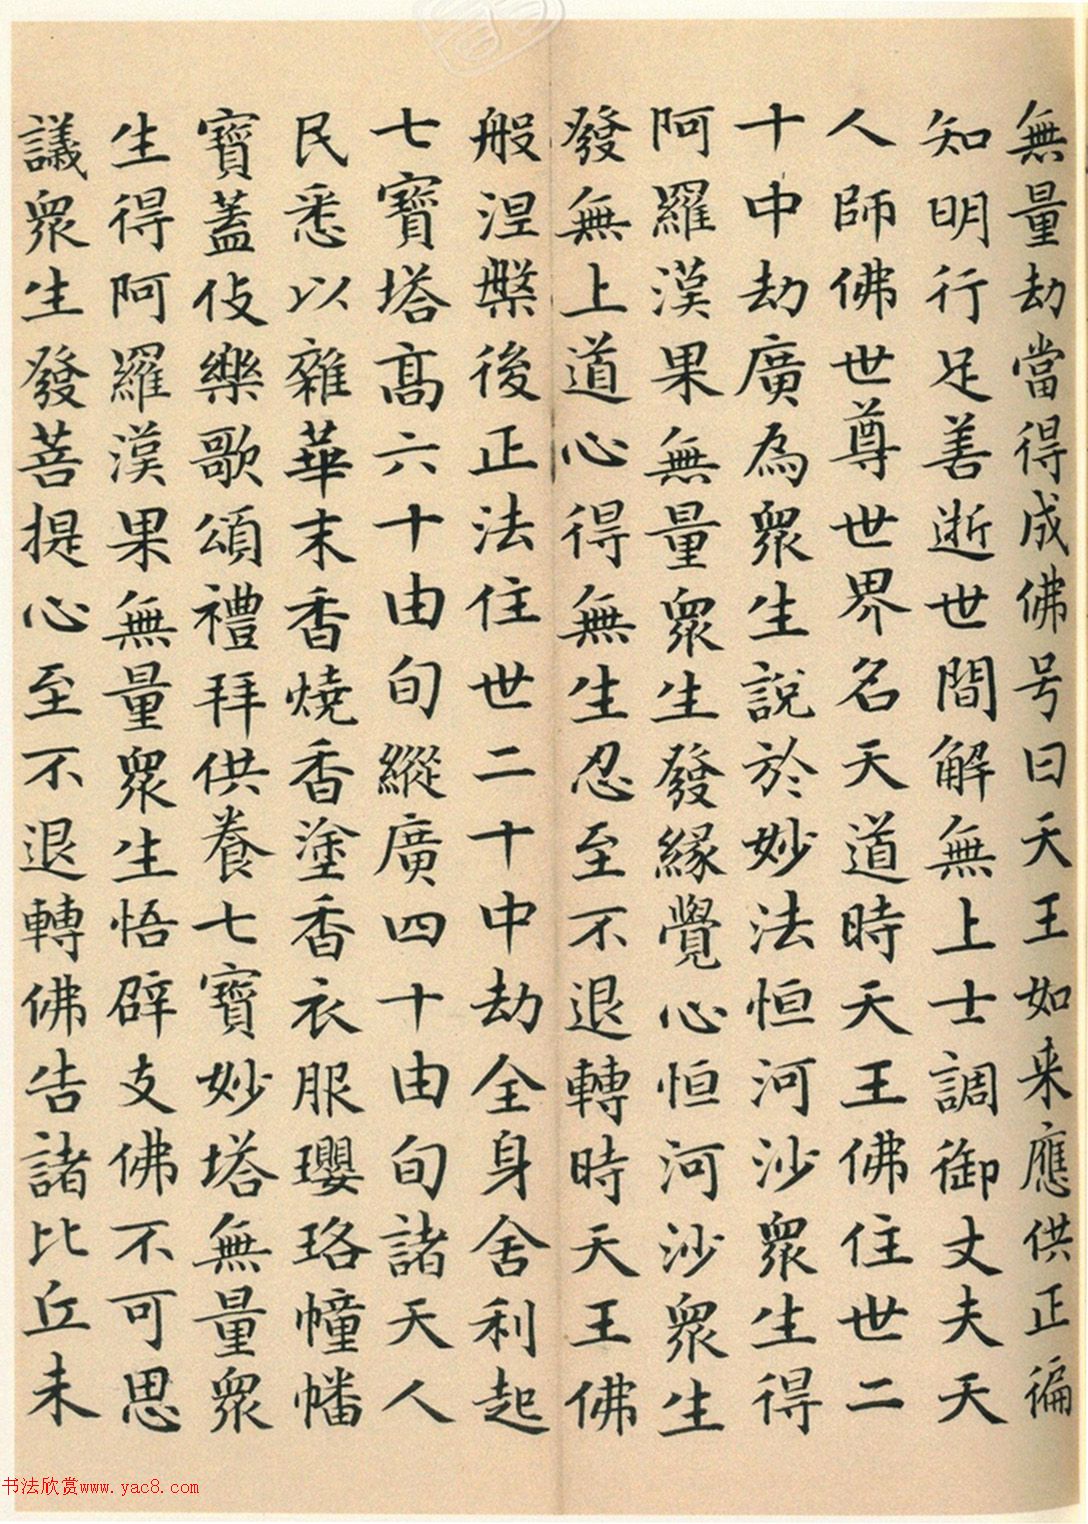 無量劫當得成佛号曰天王如来應供正徧
知明行足善逝世間解無上士調御丈夫天
人師佛世尊世界名天道時天王佛住世二
十中劫廣為衆生說於妙法恒河沙衆生得
阿羅漢果無量衆生發緣覺心恒河沙衆生
發無上道心得無生忍至不退轉時天王佛
般涅槃後正法住世二十中劫全身舍利起
七寶塔高六十由旬縱廣四十由旬諸天人
民悉以雜華末香燒香塗香衣服瓔珞幢幡
寶蓋伎樂歌頌禮拜供養七寶妙塔無量衆
生得阿羅漢果無量衆生悟辟支佛不可思
議衆生發菩提心至不退轉佛告諸比丘未
书法欣赏www.yac8.com